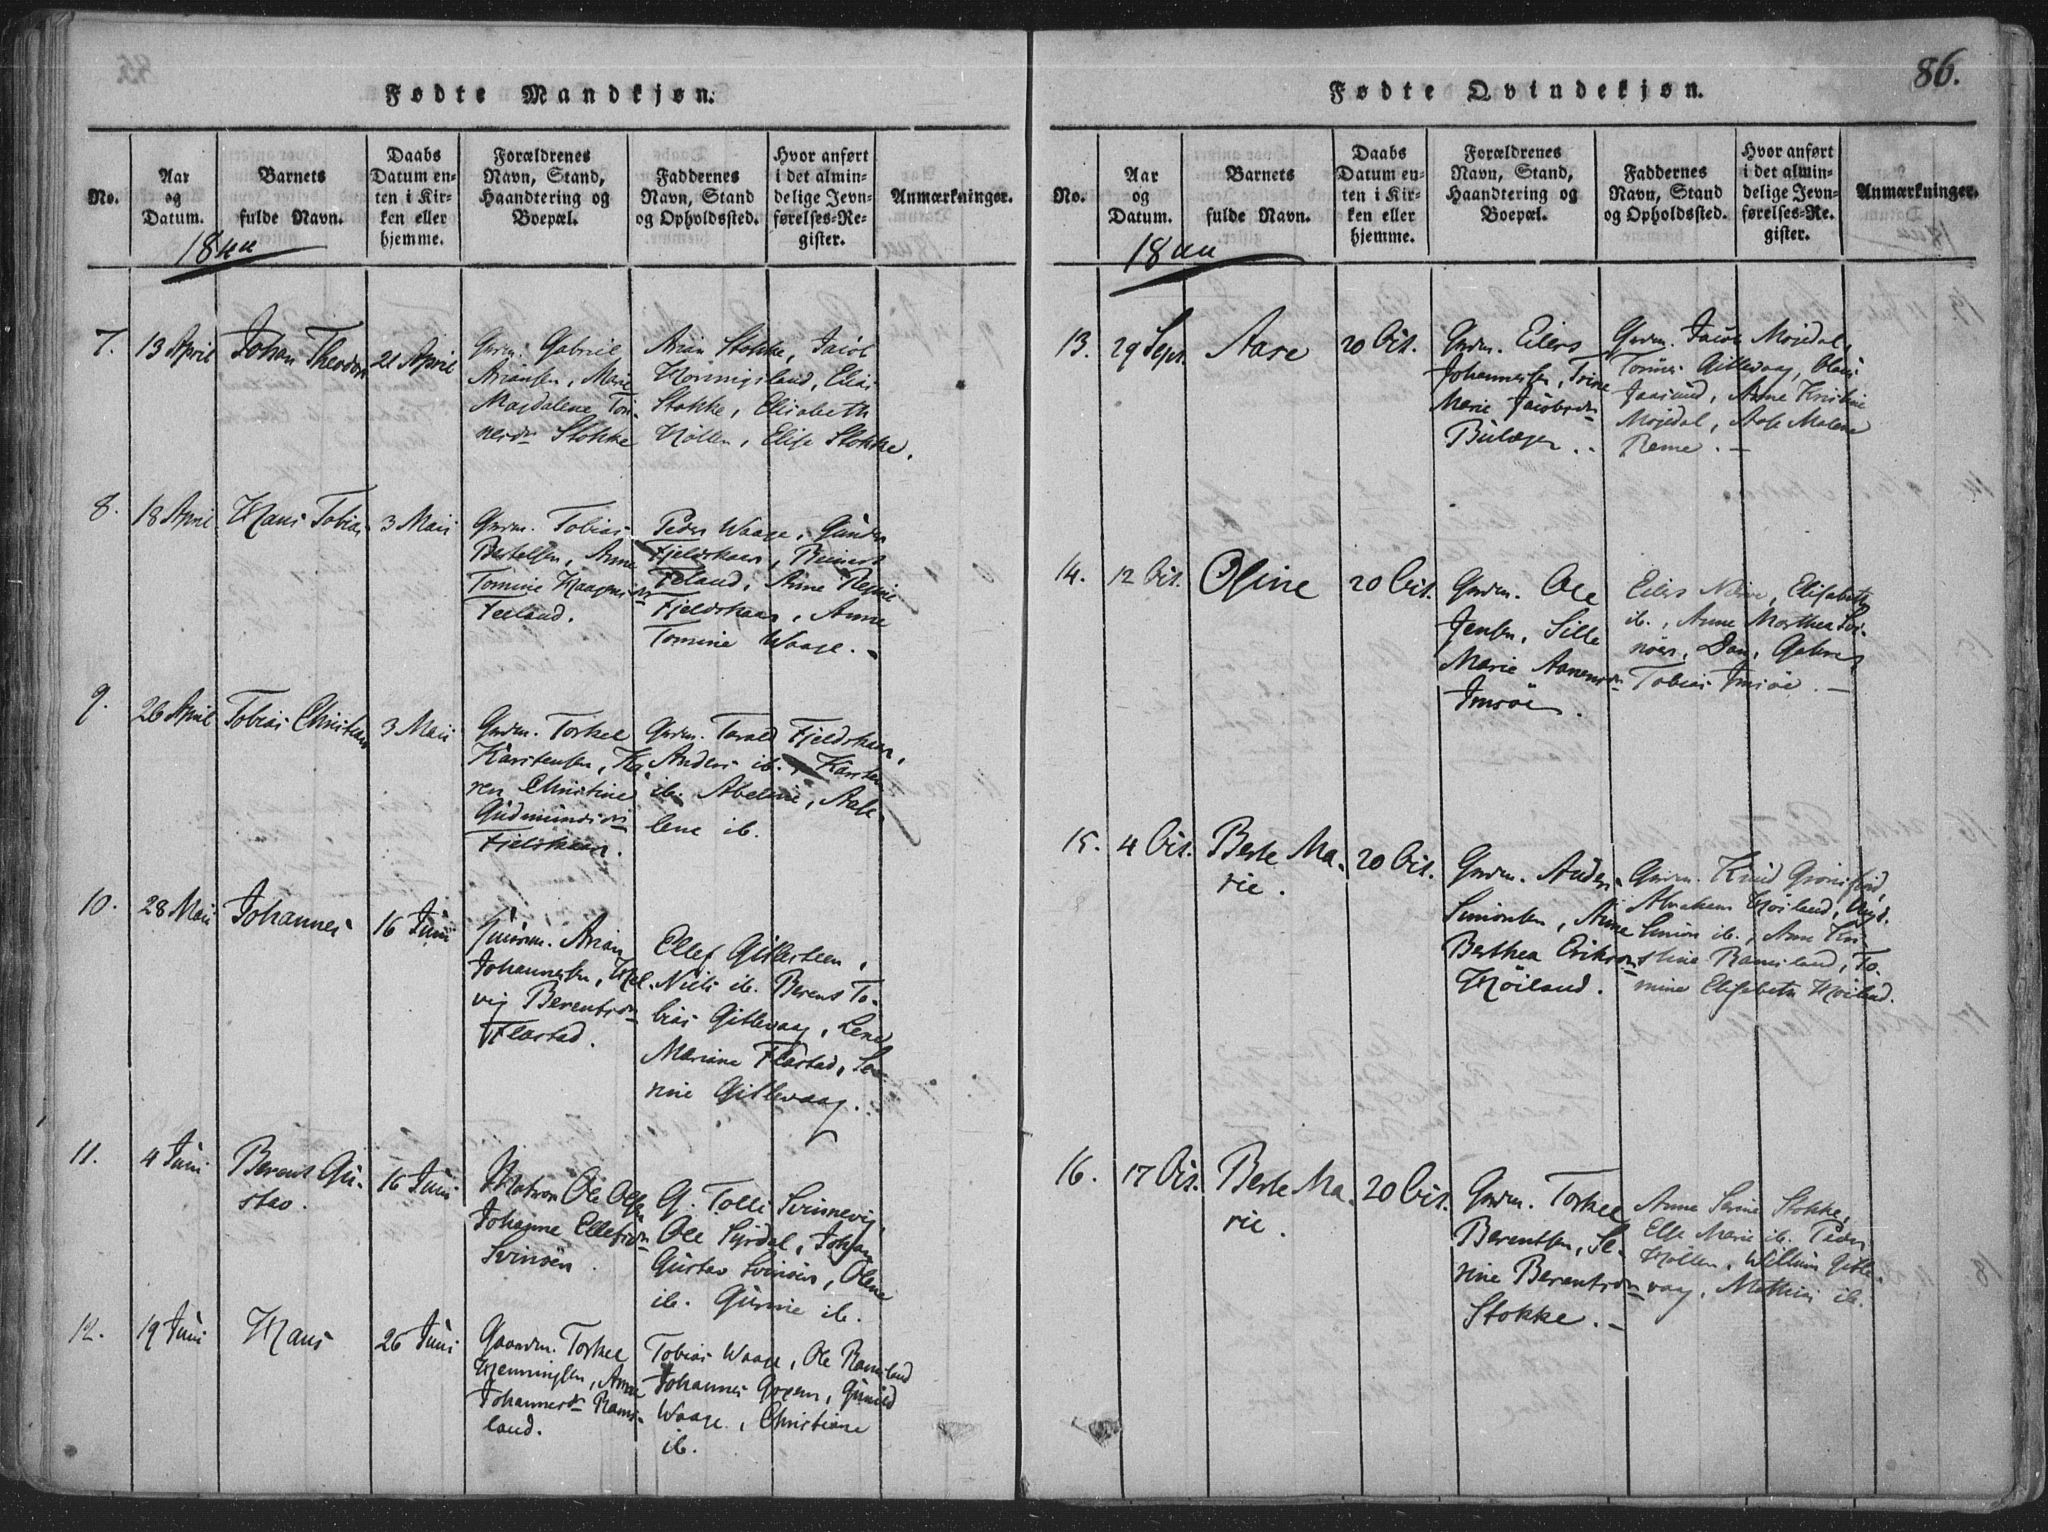 Fødte Mandkjøn.
No.
Aar
og
Datum.
Barnets
fulde Navn.
Daabs
Datum en-
ten i Kir-
ken eller
hjemme.
Forældrenes
Navn, Stand,
Haandtering og
Boepæl.
Faddernes
Navn, Stand
og Opholdssted.
Hvor anført
i det almin-
delige Jevn-
førelses-Re-
gister.
Anmærkninger.
7.
13 April
Johan Theodor
21 April
Gaardm. Gabriel
Ariansen, Marie
Magdalene Tom-
Stokke
Arian Stokke, Jacob
Elias
Stokke, Elisabeth
Elise Stokke.
8.
18 April
Hans Tobias
3 Maii
Tobias
Bertelsen, Anne
Tomine
Feeland.
Peder Waage, Gunder
Fjeldskaar, Reinert
Feland, Anne
Fjeldskaar, Anne
Tomine Waage.
9.
26 April
Tobias Christian
3 Maii
Torkel
Karstensen, Ka-
ren Christine
Fjeldskaar.
Tarald Fjeldskaar,
Anders ib., Karsten
ib. Abelone, Aase
Lene ib.
10.
28 Maii
Johannes
16 Juni
Arian
Johannesen, Hel-
vig
Flastad.
Ellef Gitlesteen,
Niels ib. Berent To-
bias Gitlevaag, Lene
Mariane Flastad, Se-
rine Gitlevaag.
11.
4 Juni
Berent Gu-
stav.
16 Juni
Matros Ole Olsen
Johanne
Svinøen
G. Tolli Svinnevig,
Ole Syrdal, Johan
Gustav Svinøen, Olene
ib. Gurine ib.
12.
19 Juni
Hans
26 Juni
Torkel
Henningsen, Anne
Rams-
land.
Tobias Waage, Ole Ramsland
Johannes Gunild
Waage, Christiane
ib.
86.
Fødte Qvindekjøn.
No.
Aar
og
Datum.
Barnets
fulde Navn.
Daabs
Datum en-
ten i Kir-
ken eller
hjemme.
Forældrenes
Navn, Stand,
Haandtering og
Boepæl.
Faddernes
Navn, Stand
og Opholdssted.
Hvor anført
i det almin-
delige Jevn-
førelses-Re-
gister.
Anmærkninger.
13.
29 Sept.
Aase
20 Oct.
Eilert
Johannesen, Trine
Marie
Jacob
Gitlevaag, Olaus
Jaasund, Anne Kristine
Aase Malene
Reme.
14.
12 Oct.
Oline
20 Oct.
Ole
Jensen, Sille
Marie
Imsøe.
Eilert Elisabeth
ib., Anne Marthea Svi-
nøer, Dan. Gabriel
Tobias Imsøe.
15.
4 Oct.
Berte Ma-
rie.
20 Oct.
Anders
Simonsen, Anne
Berthea
Høiland.
Knud Grønsfjord,
Abraham Høiland,
Simon ib., Anne Kri-
stine Ramsland, To-
mine Elisabeth Høiland.
16.
17 Oct.
Berte Ma-
rie.
20 Oct.
Torkel
Berentsen, Se-
rine
Stokke.
Anne Serine Stokke,
Else Marie ib. Peder
Willum Gitle-
vaag, Mathias ib.